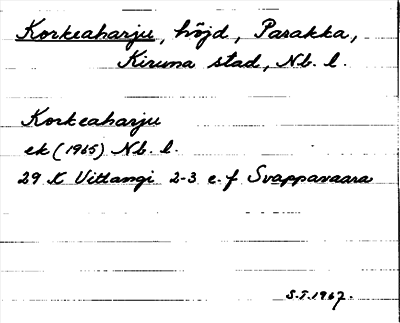 Korkeaharju, höjd, Parakka,
Kiruna stad, Nb. l.
Korkeaharju
ek (1965) Nb. l.
29 K Vittangi 2-3 e-f Svappavaara
S.T. 1967.